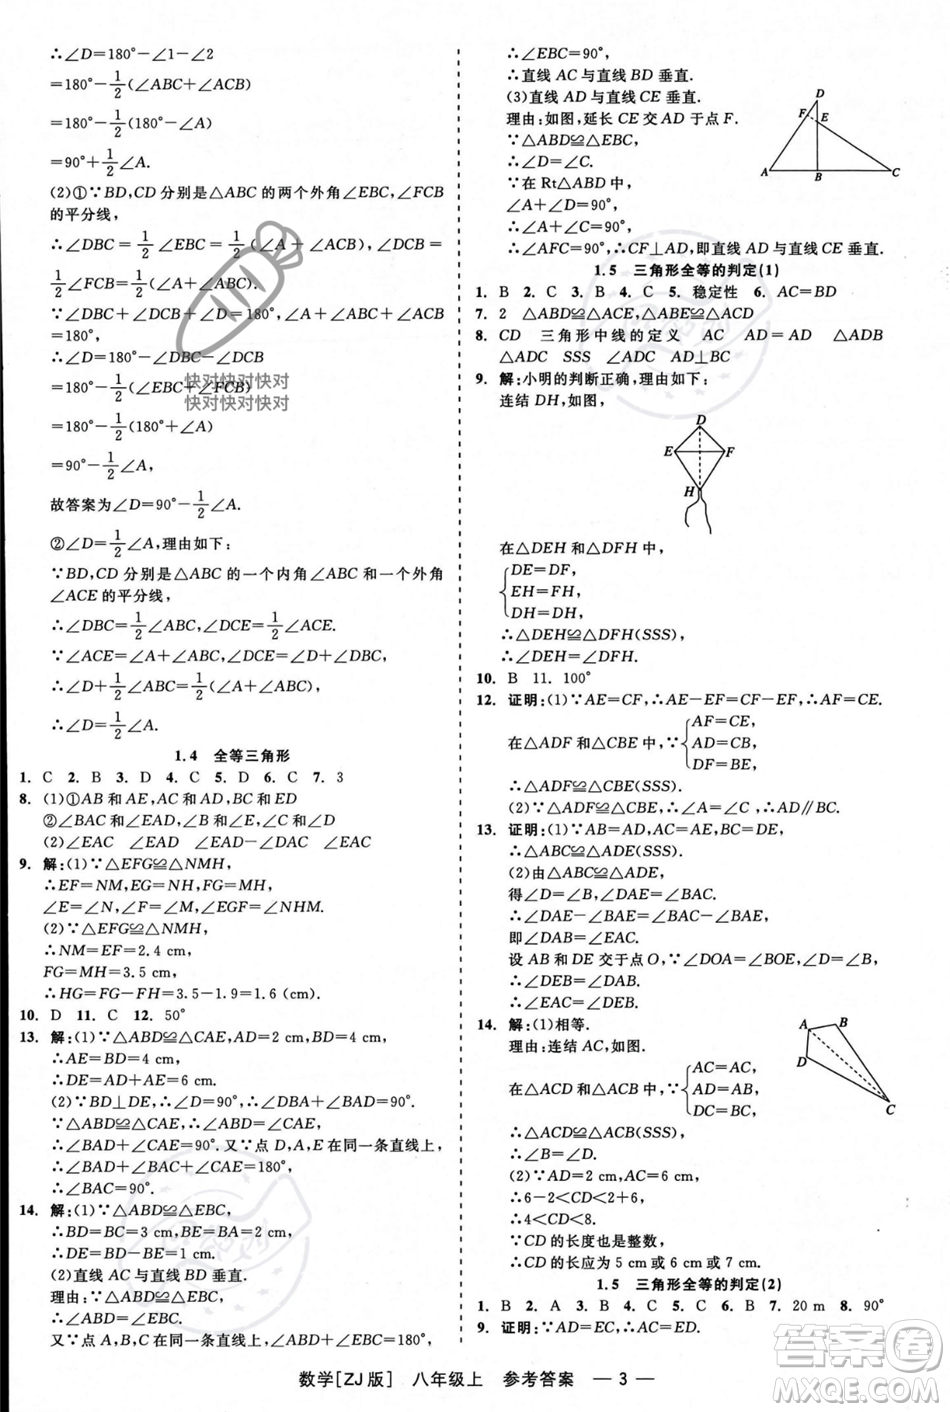 ∴∠D=180°-∠1-∠2
=180°-1/2(∠ABC+∠ACB)
=180°-1/2(180°-∠A)
=90°+1/2∠A.
(2)①∵BD,CD分别是△ABC的两个外角∠EBC,∠FCB
的平分线,
∴∠DBC=1/2∠EBC=1/2(∠A+∠ACB),∠DCB=
1/2∠FCB=1/2(∠A+∠ABC).
∴∠DBC+∠DCB=1/2(∠A+∠ACB+∠A+∠ABC)=
1/2(180°+∠A).
∴∠D=180°-∠DBC-∠DCB
=180°-1/2(∠EBC+∠FCB)
=180°-1/2(180°+∠A)
=90°-1/2∠A,
故答案为∠D=90°-1/2∠A.
②∠D=1/2∠A,理由如下:
∵BD,CD分别是△ABC的一个内角∠ABC和一个外角
∠ACE的平分线,
∴∠DBC=1/2∠ABC,∠DCE=1/2∠ACE.
∵∠ACE=∠A+∠ABC,∠DCE=∠D+∠DBC,
∴∠D+1/2∠ABC=1/2(∠A+∠ABC),
∴∠D=1/2∠A.
1.4 全等三角形
1. C 2. B 3. D 4. C 5. D 6. C 7. 3
8. (1)①AB和AE,AC和AD,BC和ED
②∠BAC和∠EAD,∠B和∠E,∠C和∠D
(2)∠EAC ∠EAD ∠DAC ∠EAC
9. 解:(1)∵△EFG≌△NMH,
∴EF=NM,EG=NH,FG=MH,
∠E=∠N,∠F=∠M,∠EGF=∠NHM.
(2)∵△EFG≌△NMH,
∴NM=EF=2.4 cm,
FG=MH=3.5 cm,
∴HG=FG-FH=3.5-1.9=1.6(cm).
10. D 11. C 12. 50°
13. 解:(1)∵△ABD≌△CAE,AD=2 cm,BD=4 cm,
∴AE=BD=4 cm,
∴DE=AD+AE=6 cm.
(2)∵BD⊥DE,∴∠D=90°,∴∠DBA+∠BAD=90°.
∵△ABD≌△CAE,
∴∠DBA=∠CAE=90°.又∵点D,A,E在同一条直线上,
∴∠BAD+∠CAE+∠BAC=180°,
∴∠BAC=90°.
14. 解:(1)∵△ABD≌△EBC,
∴BD=BC=3 cm,BE=AB=2 cm,
∴DE=BD-BE=1 cm.
(2)直线AC与直线BD垂直.
理由:∵△ABD≌△EBC,∴∠ABD=∠EBC.
又∵点A,B,C在同一条直线上,∴∠ABD+∠EBC=180°,
∴∠EBC=90°,
∴直线AC与直线BD垂直.
(3)直线AD与直线CE垂直.
理由:如图,延长CE交AD于点F.
∵△ABD≌△EBC,
∴∠D=∠C.
∵在Rt△ABD中,
∠A+∠D=90°,
∴∠A+∠C=90°,
∴∠AFC=90°,∴CF⊥AD,即直线AD与直线CE垂直.
D
F E
A B C
1.5 三角形全等的判定(1)
1. B 2. C 3. B 4. C 5. 稳定性 6. AC=BD
7. 2 △ABD≌△ACE,△ABE≌△ACD
8. CD 三角形中线的定义 AC AD △ADB
△ADC SSS △ADB △ADC
9. 解:小明的判断正确,理由如下:
连结DH,如图,
D
E F
H
在△DEH和△DFH中,
DE=DF,
EH=FH,
DH=DH,
∴△DEH≌△DFH(SSS),
∴∠DEH=∠DFH.
10. B 11. 100°
12. 证明:(1)∵AE=CF,∴AE-EF=CF-EF,∴AF=CE.
在△ADF和△CBE中,∵
AF=CE,
AD=CB,
DF=BE,
∴△ADF≌△CBE(SSS).
(2)∵△ADF≌△CBE,∴∠A=∠C,∴AD∥BC.
13. 证明:(1)∵AB=AD,AC=AE,BC=DE,
∴△ABC≌△ADE(SSS).
(2)由△ABC≌△ADE,
得∠D=∠B,∠DAE=∠BAC.
∴∠DAE-∠BAE=∠BAC-∠BAE,
即∠DAB=∠EAC.
设AB和DE交于点O,∵∠DOA=∠BOE,∠D=∠B,
∴∠DEB=∠DAB.
∴∠EAC=∠DEB.
14. 解:(1)相等.
理由:连结AC,如图.
在△ACD和△ACB中,∵
AC=AC,
AD=AB,
DC=BC,
∴△ACD≌△ACB(SSS),
∴∠B=∠D.
(2)∵AD=2 cm,AB=2 cm,BC=6 cm,
∴6-2<CD<2+6,
∴4<CD<8.
∵CD的长度也是整数,
∴CD的长应为5 cm或6 cm或7 cm.
A B
D
C
1.5 三角形全等的判定(2)
1. B 2. A 3. C 4. C 5. C 6. B 7. 20 m 8. 90°
9. 证明:∵AD=EC,∴AC=ED.
数学[ZJ版] 八年级上 参考答案 — 3 —
快对快对快对
快对快对快对
答案圈
MXQE.COM